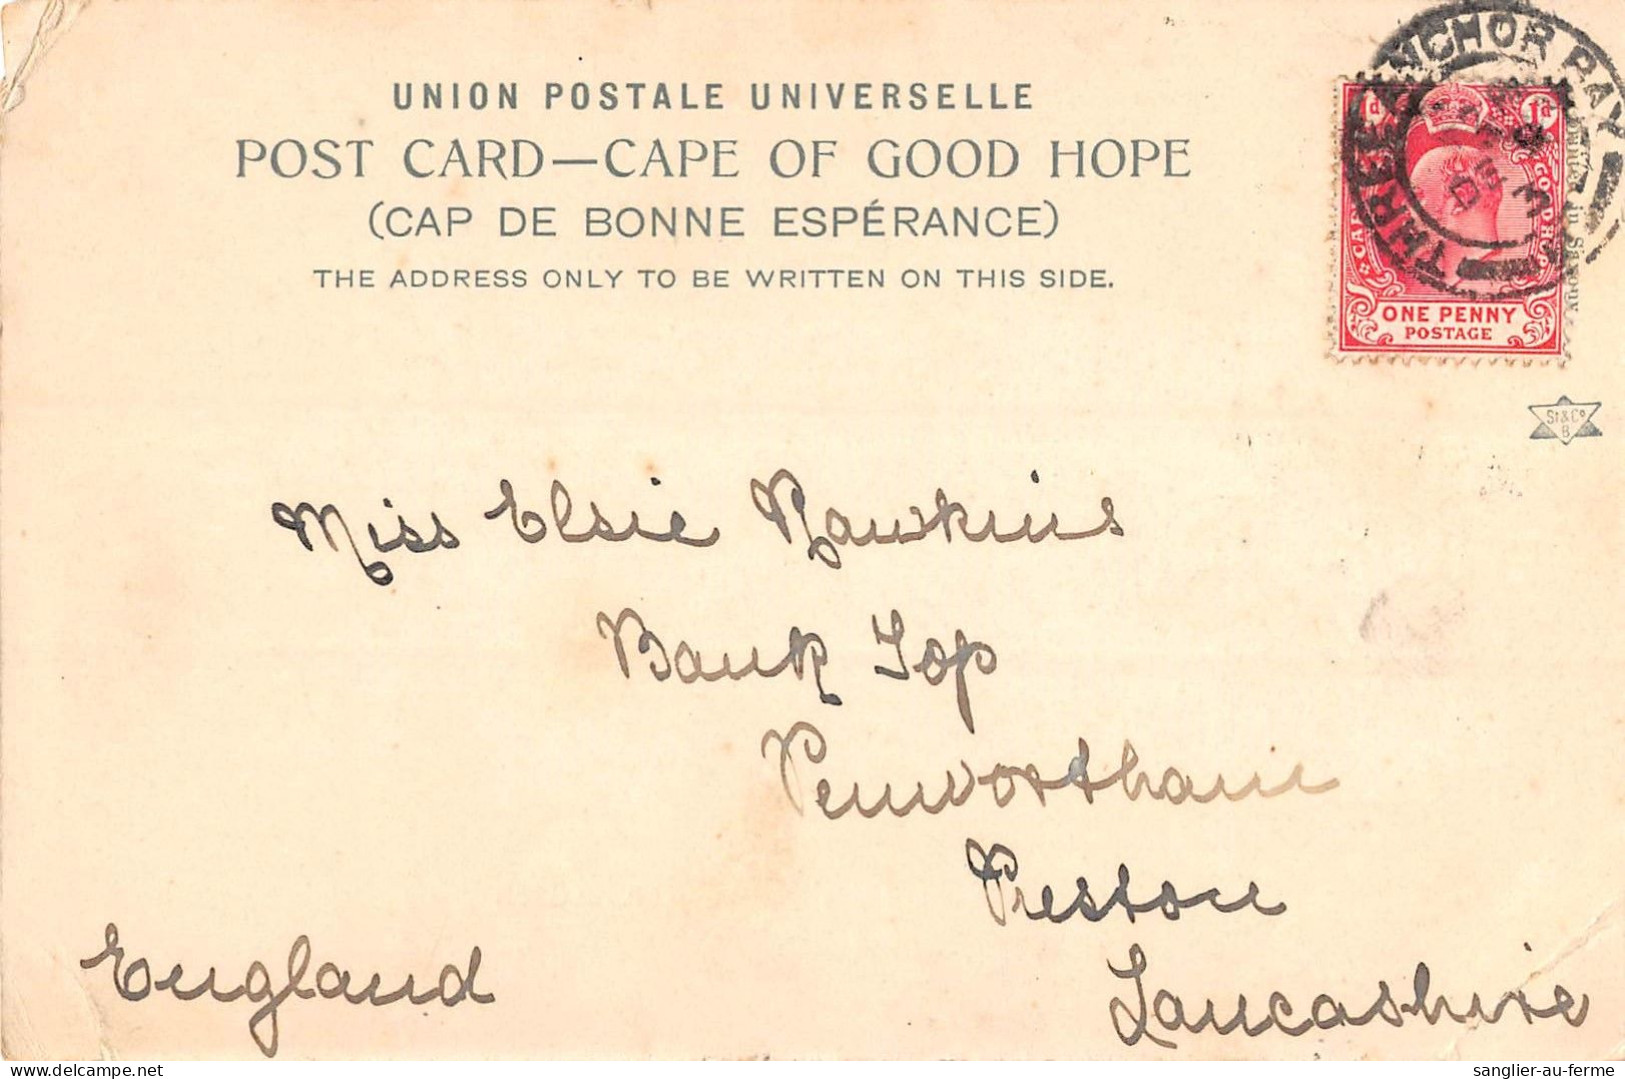 UNION POSTALE UNIVERSELLE
POST CARD—CAPE OF GOOD HOPE
(CAP DE BONNE ESPÉRANCE)
THE ADDRESS ONLY TO BE WRITTEN ON THIS SIDE.
THREE ANCHOR BAY
1d
ONE PENNY
POSTAGE
in Saxony
St & Co
B
Miss Elsie Hawkins
Bank Top
Penwortham
Preston
Lancashire
England
sanglier-au-ferme